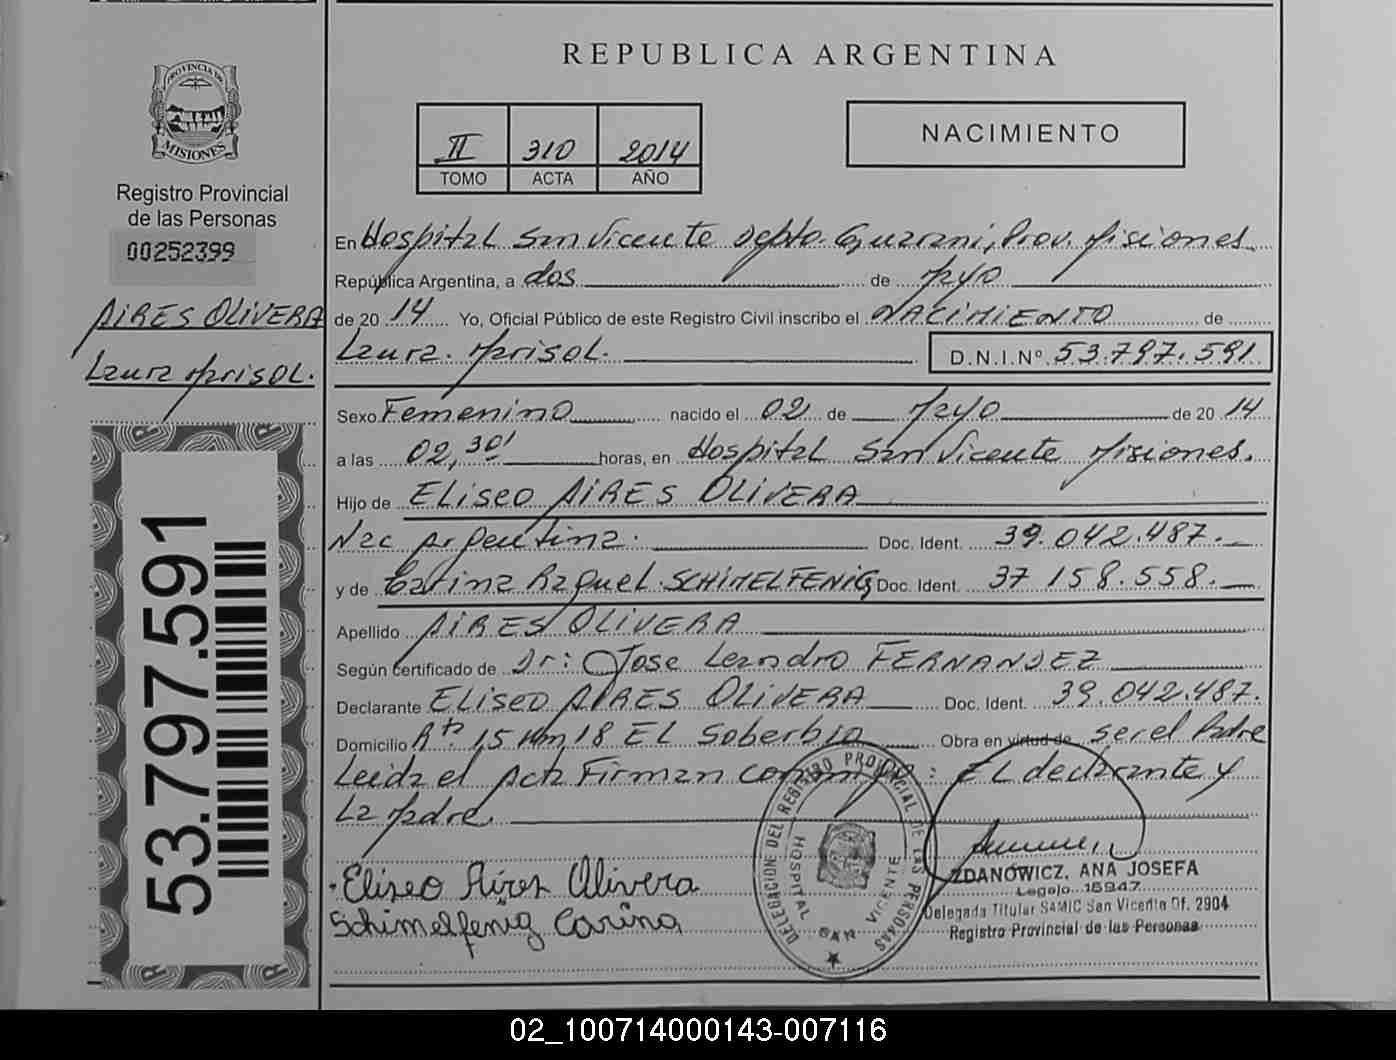 REPUBLICA ARGENTINA
PROVINCIA DE
MISIONES
Registro Provincial
de las Personas
00252399
AIRES OLIVERA
Laura Marisol.
53.797.591
II 310 2014
TOMO ACTA AÑO
NACIMIENTO
En Hospital San Vicente Depto. Guarani, Prov. Misiones
República Argentina, a dos de Mayo
de 20 14 Yo, Oficial Público de este Registro Civil inscribo el NACIMIENTO de
Laura. Marisol. D.N.I.Nº 53.797.591
Sexo Femenino nacido el 02 de Mayo de 20 14
a las 02,30' horas, en Hospital San Vicente Misiones.
Hijo de ELiseo AIRES OLIVERA
Nac Argentina. Doc. Ident. 39.042.487.
y de Carina Raquel SCHIMELFENIG Doc. Ident. 37 158.558.
Apellido AIRES OLIVERA
Según certificado de Dr: Jose Leandro FERNANDEZ
Declarante ELiseo AIRES OLIVERA Doc. Ident. 39.042.487.
Domicilio Rta. 15 Km, 18 EL Soberbio Obra en virtud de ser el Padre
Leida el Acta Firman conmigo: EL declarante y
La Madre
Eliseo Aires Olivera
Schimelfenig Carina
DELEGACION DEL REGISTRO PROVINCIAL DE LAS PERSONAS
HOSPITAL SAN VICENTE
ZDANOWICZ, ANA JOSEFA
Legajo. 15947
Delegada Titular SAMIC San Vicente Of. 2904
Registro Provincial de las Personas
02_100714000143-007116